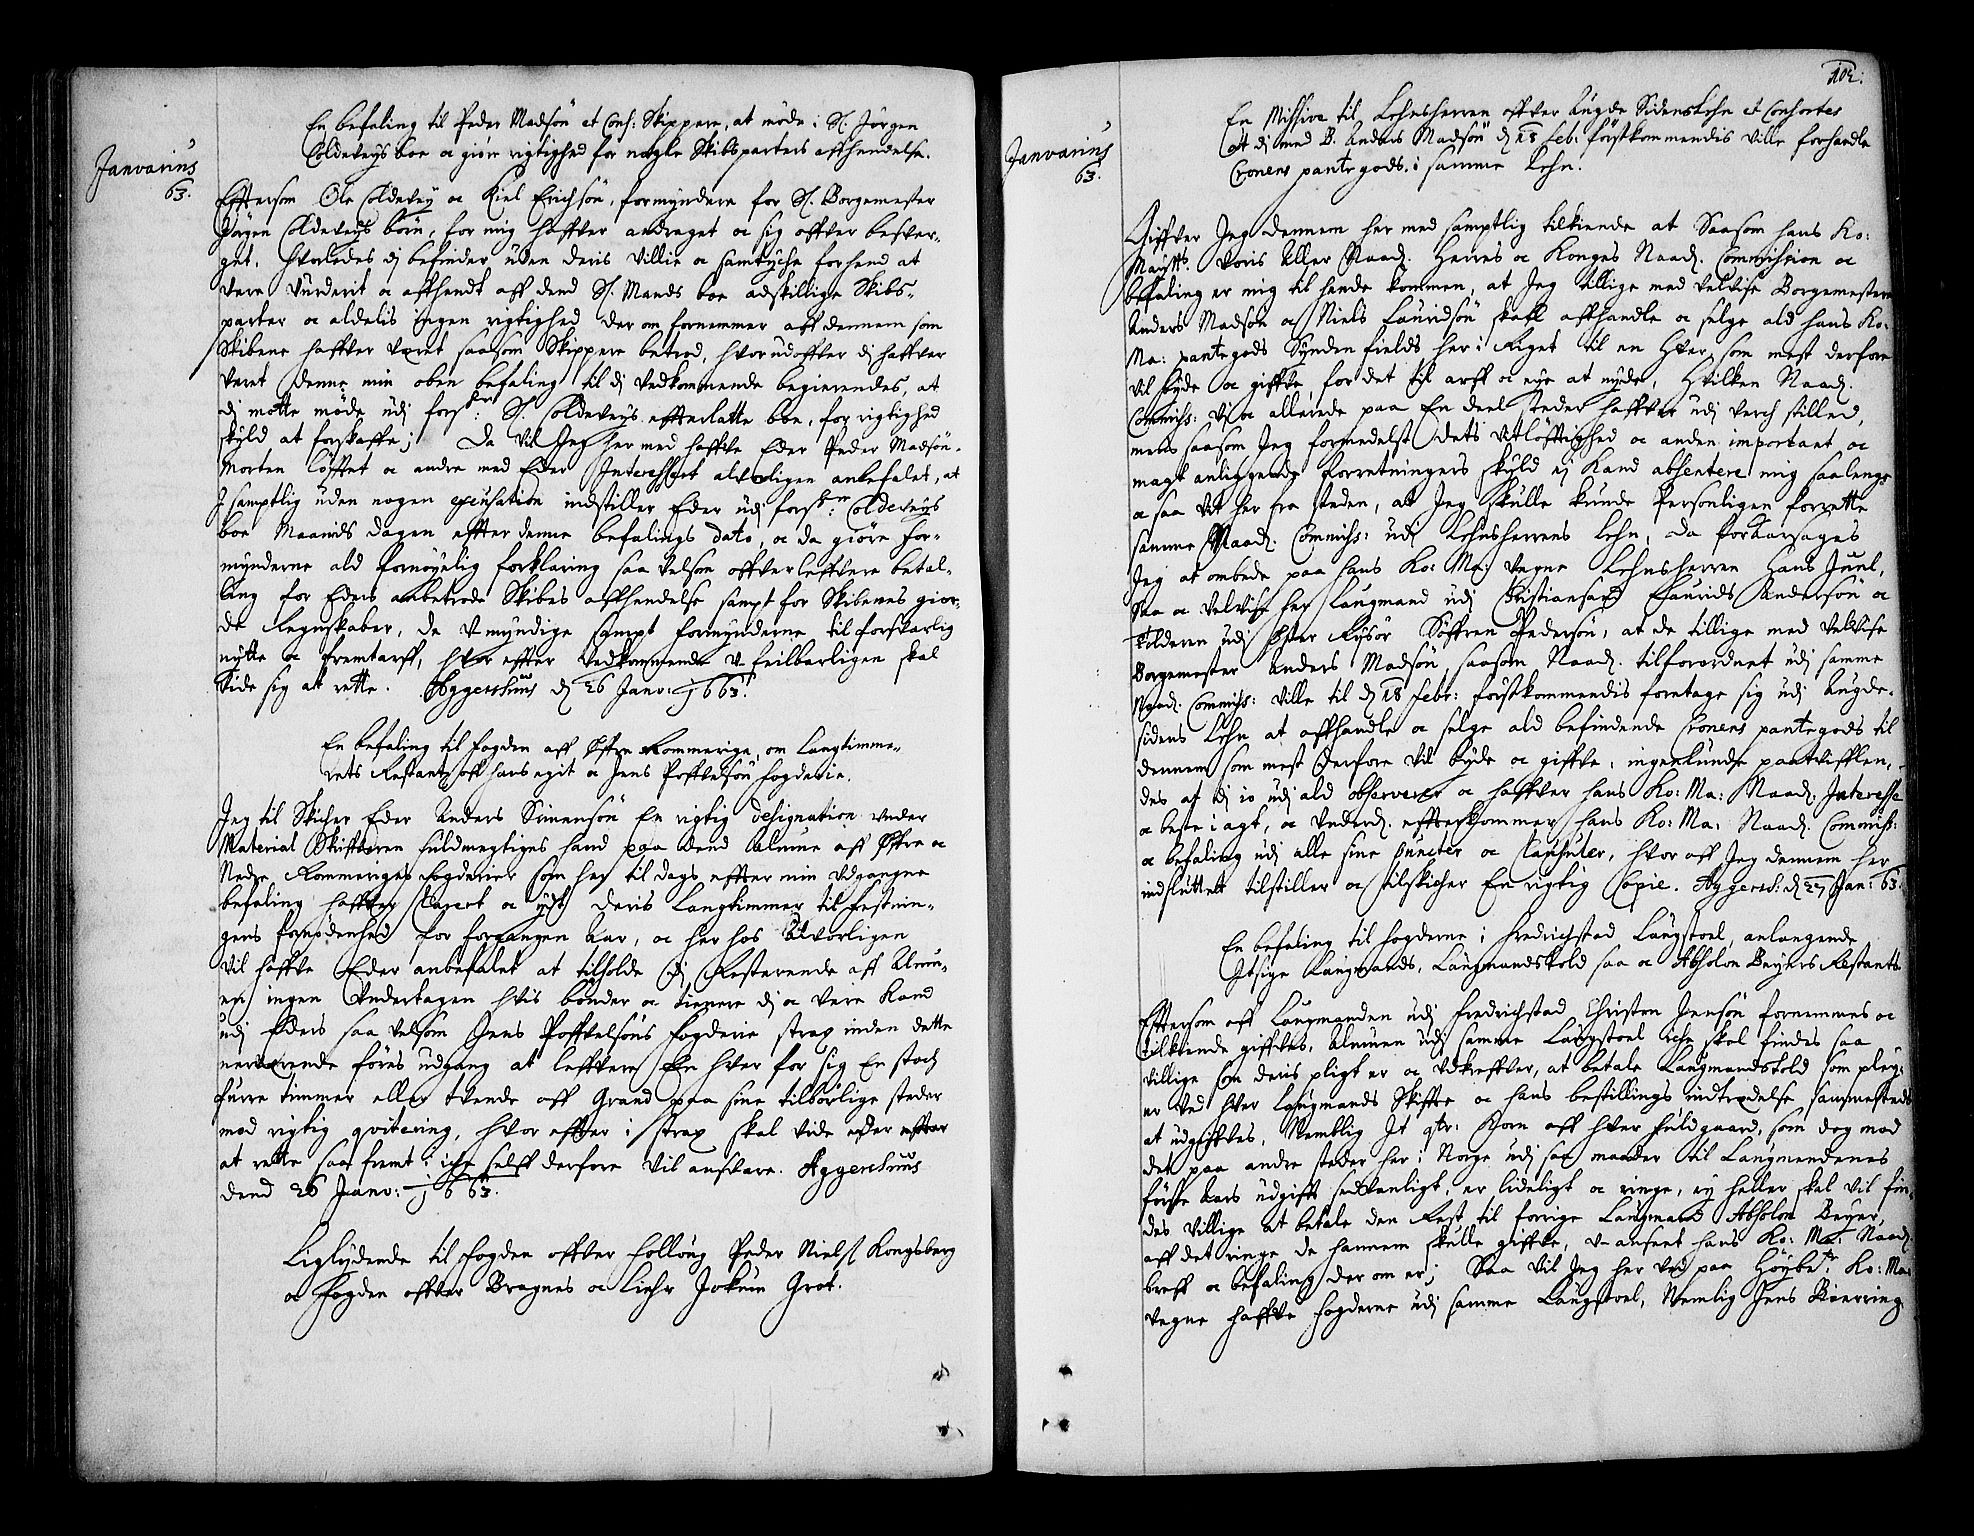 Januarius
63.
En befaling til Peder Madsön et Cons: Skippere, at möde i Sl. Jörgen
Coldeveys boe oc giöre rigtighed for nogle Skibsparters affhendelse.
Effterson Ole Coldevey oc Kiel Erichsön, formyndere for Sl. Borgemester
Jörgen Coldeveys börn, for mig haffver andraget oc sig offver besver-
get, hvorledes dj befinder uden deris villie oc samtyche forhend at
vere vurderit oc affhendt aff dend Sl. Mands boe adskillige Skibs-
parter oc aldelis ingen rigtighed der om fornemmer aff dennem som
Skibene haffver veret saasom Skippere betrod, hvorudoffver dj haffver
veret denne min oben befaling til dj vedkommende begierendes, at
dj motte möde udj forsk: Sl. Coldeveys effterlatte boe, for rigtighed
skyld at forskaffe; Da vil Jeg her med haffve Eder Peder Madsön
Morten Löffvet oc andre med Eder Interesseret alvorligen anbefalet, at
J samptlig uden nogen excusation indstiller Eder udj forskn: Coldeveys
boe Maanids dagen effter denne befalings dato, oc da giöre for-
mynderne ald fornöyelig forklaring saa velsom offverleffvere betal-
ling for Eders anbetrode Skibes affhendelse sampt for Skibenes gior-
de Regnskaber, de Umyndige sampt formynderne til forsvarlig
nytte oc fremtarff, hvor effter vedkommende ufeilbarligen skal
vide sig at rette. Aggershuus d 26 Janv: 1663.
En befaling til fogden aff Öffre Rommerige, om Langtimme-
rets Restantz aff hans egit oc Jens Poffvelsön fogderie.
Jeg til Skicher Eder Anders Simensön En rigtig designation under
Material Skriffveren fuldmegtiges hand paa dend Almue aff Öffre oc
Nedre Rommeriges fogderier som her til dags effter min udgangne
befaling haffver Clareret oc ydt deris Langtimmer til festnin-
gens fornödenhed for forgangen Aar, oc her hos Alvorligen
vil haffve Eder anbefalet at tilholde dj Resterende aff Almu-
en ingen undertagen hvis bönder oc tienere dj oc vere kand
udj Eders saa velsom Jens Poffvelsöns fogderie strax inden dette
nerverende föres udgang at leffvere En hver for sig En stoch
furre timmer eller tvende aff Grand paa sine tilbörlige steder
mod rigtig qvitering, hvor effter i strax skal vide eder effter
at rette saa fremt i icke selff derfore vil ansvare. Aggershuus
dend 26 Janv: 1663.
Liglydende til fogden offver follöug Peder Niels: Kongsberg
oc fogden offver Bragnes oc Liehr Jokum Grot.
102:
Januarius
63.
En Missive til Lehnsherren offver Augde Sidens Lehn et Consortes
at dj med B. Anders Madsön d 18 feb: förstkommendis ville forhandle
Cronens pantegods i samme Lehn.
Giffver Jeg dennem her med samptlig tilkiende at Saasom hans Ko:
Maytts. voris Aller Naad. Herres oc Konges Naad. Commission oc
befaling er mig til hende kommen, at Jeg tillige med velvise Borgemestere
Anders Madsön oc Niels Lauridsön skall affhandle oc selge ald hans Ko:
Ma: pantegods Synden fields her i Riget til en hver som mest derfore
vil byde oc giffve, for det til arff oc eye at nyde, hvilken Naad.
Commiss: vj oc allerede paa En deel steder haffver udj verch stilled,
mens saasom Jeg formedelst dets vitlöfftighed oc anden important oc
magt anliggende forretningers skyld ej kand absentere mig saalenge
oc saa vit her fra steden, at Jeg skulle kunde Personligen forrette
samme Naad. Commiss: udj Lehnsherrens Lehn, Da foraarsages
Jeg at ombede paa hans Ko: Ma: vegne Lehnsherren Hans Juul,
saa oc velvise her Laugmand udj Christiansand Laurids Andersön oc
tolderen udj Öster Rysör Söffren Pedersön, at de tillige med velvise
Borgemester Anders Madsön, saasom Naad. tilforordnet udj samme
Naad. Commiss: ville til d 18 febr: förstkommendis foretage sig udj Augde-
sidens Lehn at affhandle oc selge ald befindende Cronens pantegods til
dennem som mest derfore vil byde oc giffve, ingenlunde paatvifflen-
des at dj jo udj ald observerer oc haffver hans Ko: Ma: Naad. Interesse
oc beste i agt, oc underd. effterkommer hans Ko: Ma: Naad. Commiss:
oc befaling udj alle sine Puncter oc Clausuler, hvor aff Jeg dennem her
indsluttet tilstiller oc tilskicher En rigtig Copie. Aggersh: d 27 Jan: 63.
En befaling til fogderne i fredrichstad Laugstoel, anlangende
Itzige Laugmands, Laugmandstold saa oc Absolon Beyers Restants
Effterson aff Laugmanden udj fredrichstad Christen Jensön fornemmes oc
tilkiende giffves, Almuen udj samme Laugstoel icke skal findes saa
villige som deris pligt er oc udkreffver, at betale Laugmandstold som pley-
er ved hver Laugmands Skiffte oc hans bestillings indtredelse sammesteds
at udgiffves, Nemblig It qtr: Korn aff hver fuldgaard, som dog med
det paa andre steder her i Norge udj saa maader til Laugmendenes
förste Aars udgifft sedvanligt, er lideligt oc ringe, ey heller skal vil fin-
des villige at betale den Rest til forrige Laugmand Absolon Beyer,
aff det ringe de hannem skulle giffve, u-anseet hans Ko: Ma: Naad.
breff oc befaling der om er; Saa vil Jeg her ved paa Höybe.te Ko: Ma:
vegne haffve fogderne udj samme Laugstoel, Nemlig Jens Bierring